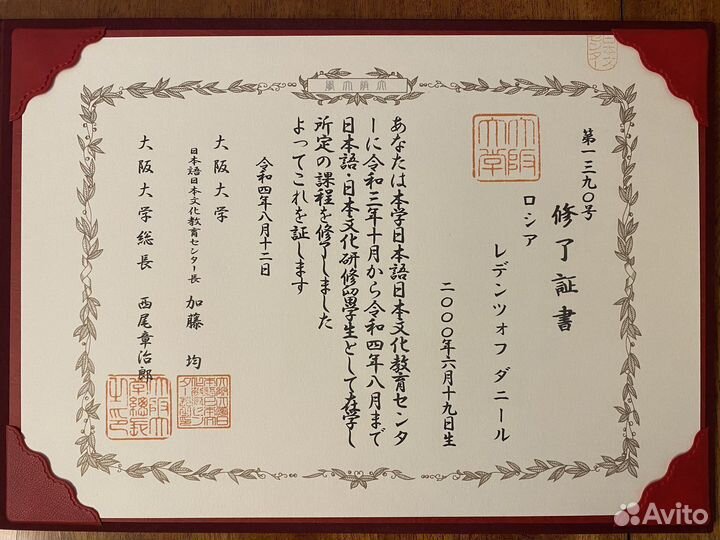 大阪大學
第一三九〇号
修了証書
ロシア
レデンツォフ ダニール
二〇〇〇年六月十九日生
あなたは本学日本語日本文化教育センタ
ーに令和三年十月から令和四年八月まで
日本語・日本文化研修留学生として在学し
所定の課程を修了しました
よってこれを証します
令和四年八月十二日
大阪大学
日本語日本文化教育センター長 加藤 均
大阪大学総長 西尾章治郎
大阪大学
Avito